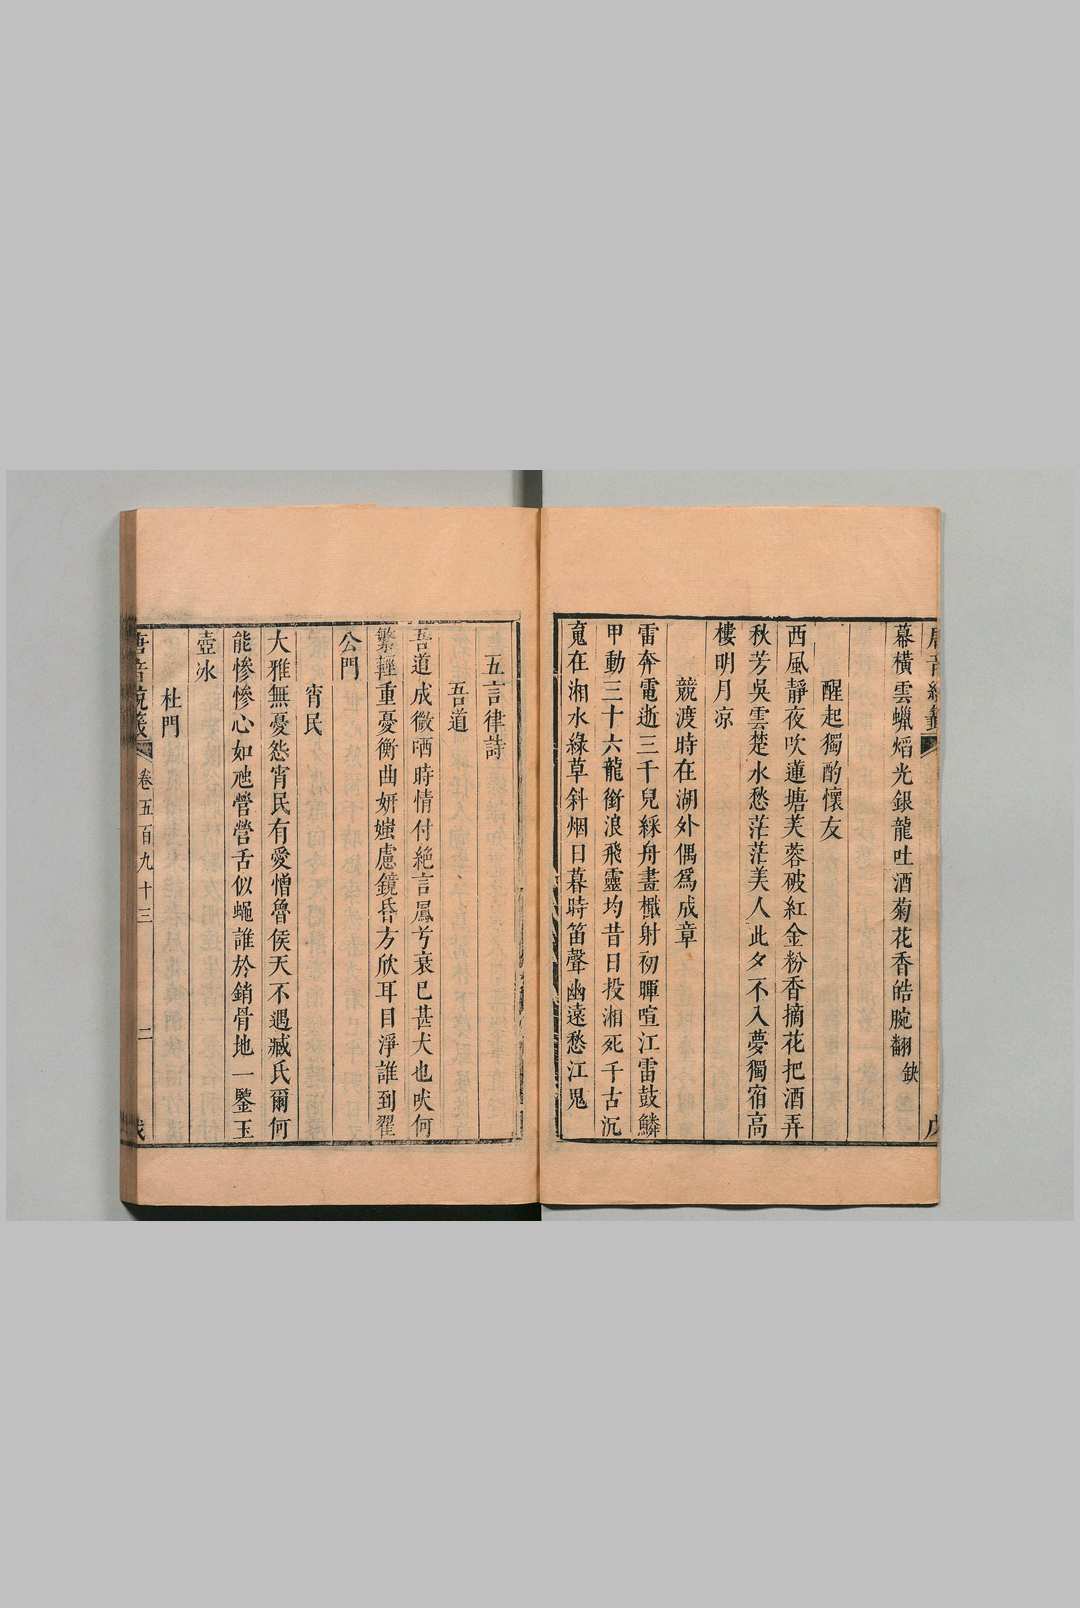 幕橫雲蠟熖光銀龍吐酒菊花香皓腕翻缺
醒起獨酌懷友
西風靜夜吹蓮塘芙蓉破紅金粉香摘花把酒弄
秋芳吳雲楚水愁茫茫美人此夕不入夢獨宿高
樓明月凉
競渡時在湖外偶爲成章
雷奔電逝三千兒綵舟畫檝射初暉喧江雷鼓鱗
甲動三十六龍銜浪飛靈均昔日投湘死千古沉
䰟在湘水綠草斜烟日暮時笛聲幽遠愁江鬼
五言律詩
吾道
吾道成微哂時情付絶言鳳兮衰已甚犬也吠何
繁輕重憂衡曲妍媸慮鏡昏方欣耳目淨誰到翟
公門
宵民
大雅無憂怨宵民有愛憎魯侯天不遇臧氏爾何
能慘慘心如虺營營舌似蠅誰於銷骨地一鑒玉
壺冰
杜門
唐音統籤 卷五百九十三 二 戊